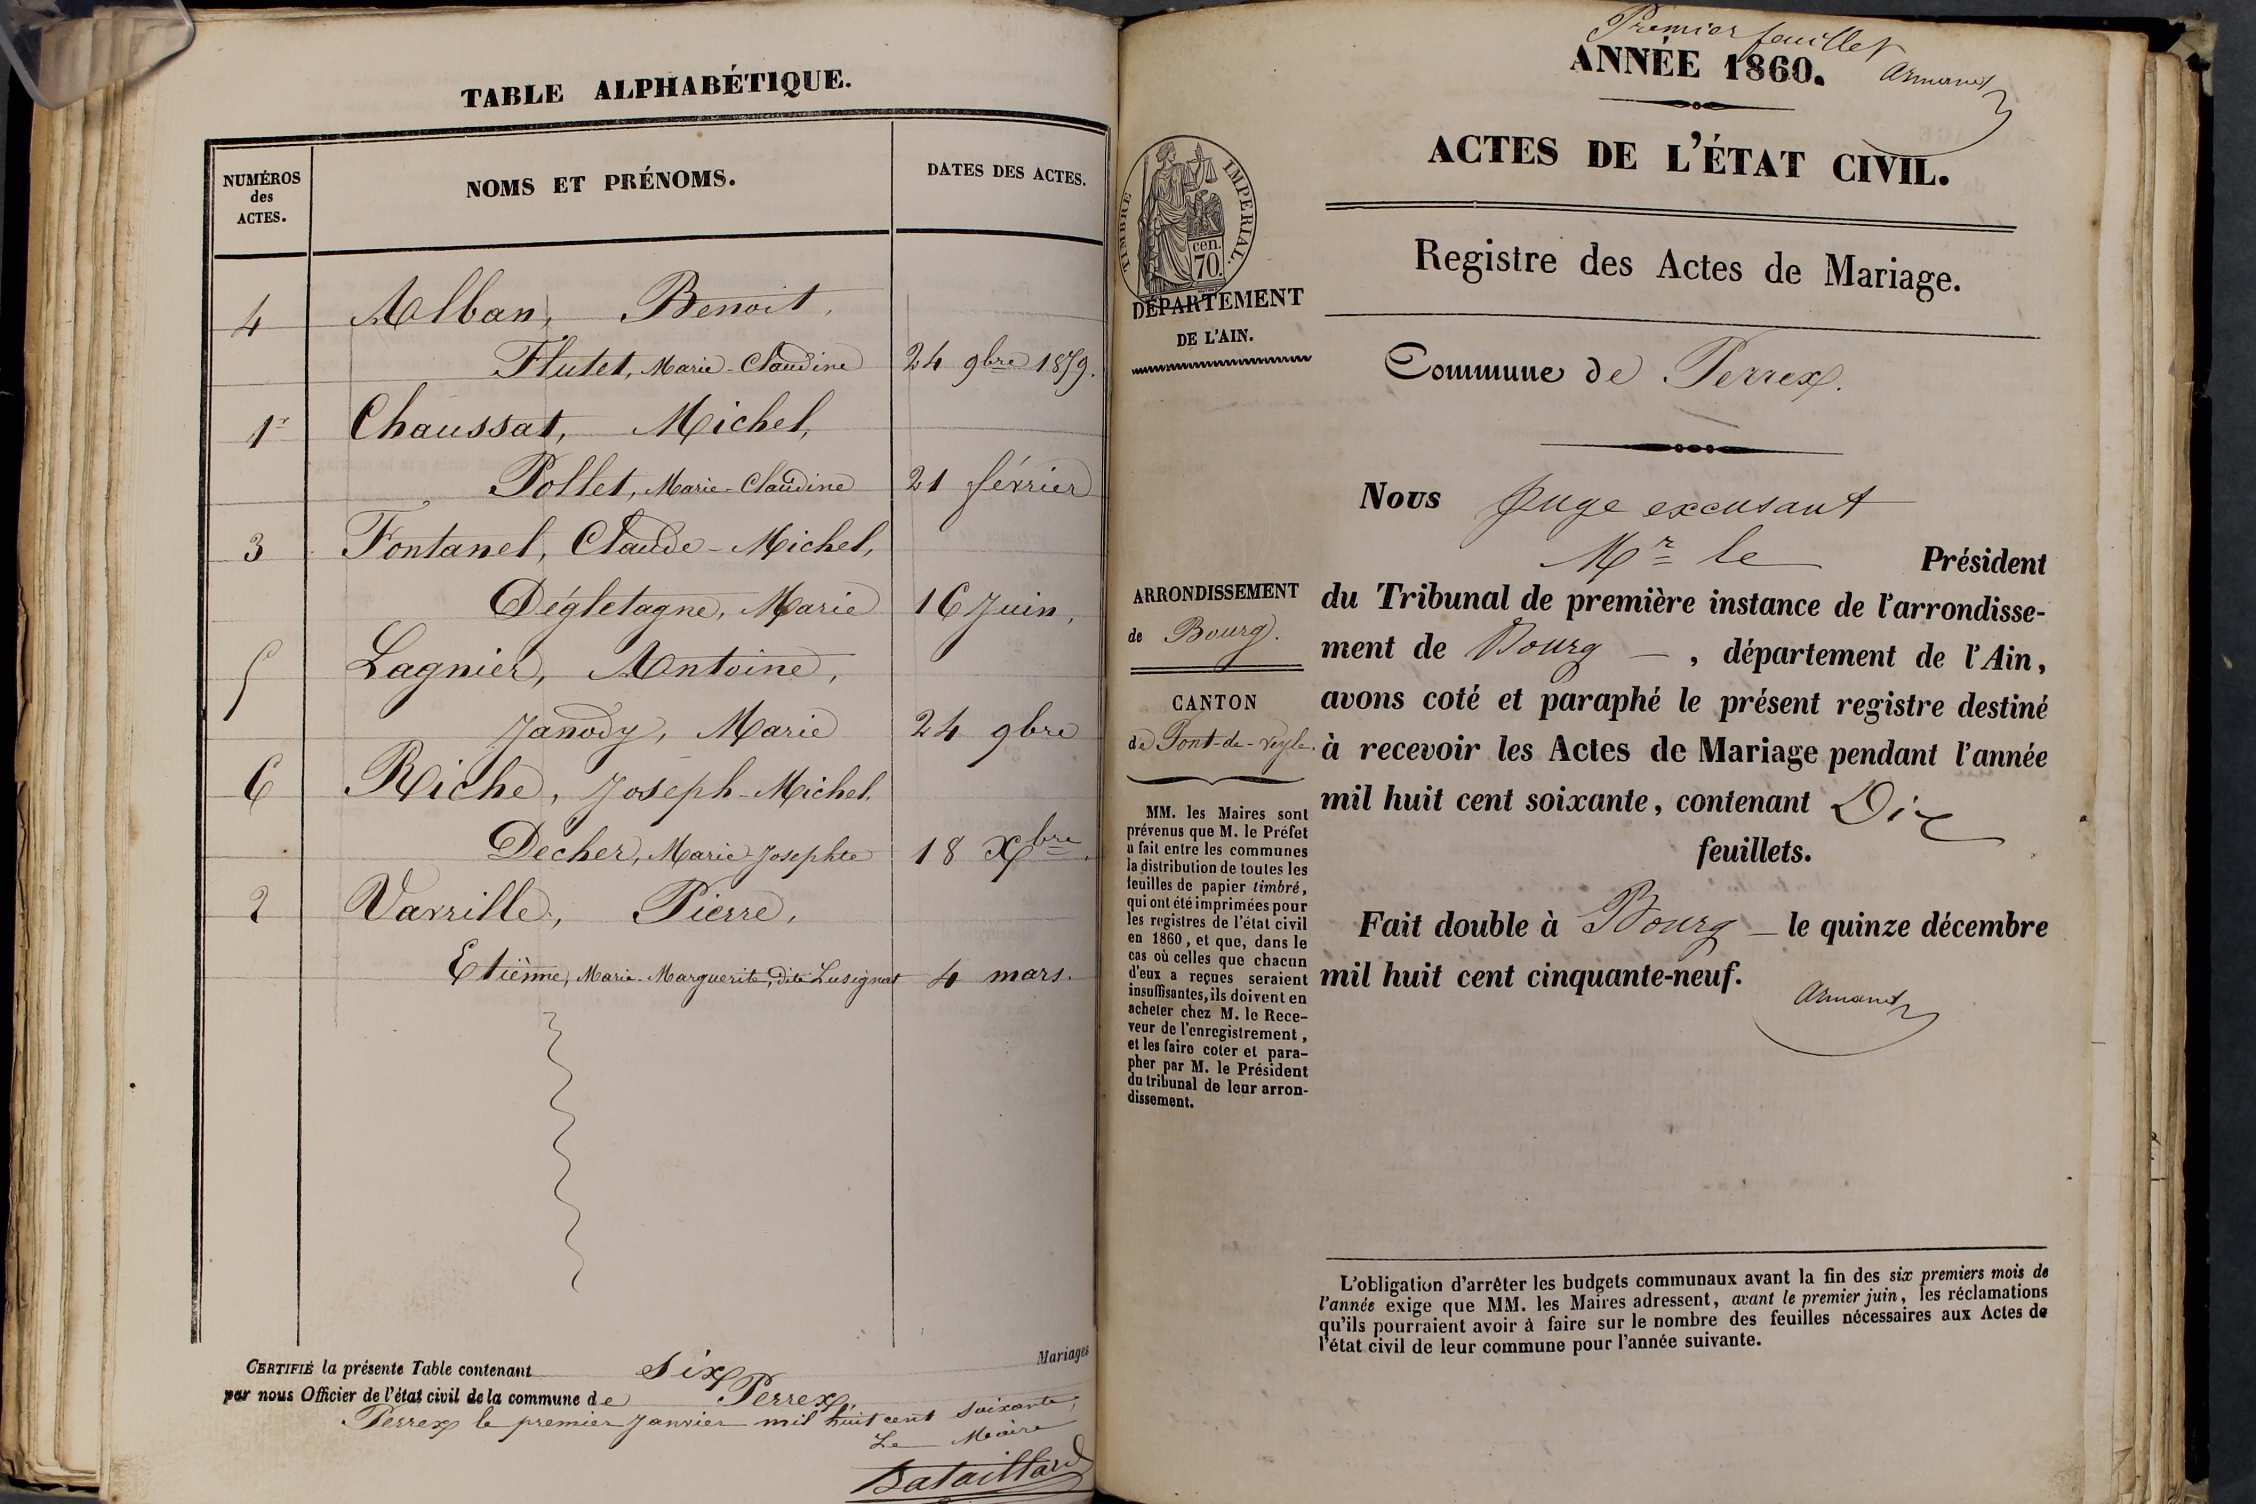 TABLE ALPHABÉTIQUE.
NUMÉROS
des
ACTES.
NOMS ET PRÉNOMS.
DATES DES ACTES.
4 Alban, Benoit,
Flutet, Marie-Claudine 24 9bre 1859.
1r Chaussat, Michel,
Pollet, Marie-Claudine 21 février
3 Fontanel, Claude-Michel,
Dégletagne, Marie 16 Juin,
5 Lagnier, Antoine,
Janody, Marie 24 9bre
6 Riche, Joseph-Michel,
Decher, Marie-Josephte 18 Xbre.
2 Varrille, Pierre,
Etiènne, Marie-Marguerite, dite Lusignat 4 mars.
CERTIFIÉ la présente Table contenant Six Mariages
par nous Officier de l'état civil de la commune de Perrex,
Perrex le premier Janvier mil huit cent soixante,
Le Maire
Bataillard
Premier feuillet
Armand
ANNÉE 1860.
ACTES DE L'ÉTAT CIVIL.
TIMBRE IMPERIAL.
cen.
70.
Registre des Actes de Mariage.
DÉPARTEMENT
DE L'AIN.
Commune de Perrex.
Nous Juge excusant
Mr le Président
du Tribunal de première instance de l'arrondisse-
ment de Bourg — , département de l'Ain,
avons coté et paraphé le présent registre destiné
à recevoir les Actes de Mariage pendant l'année
mil huit cent soixante, contenant Dix
feuillets.
Fait double à Bourg — le quinze décembre
mil huit cent cinquante-neuf.
Armand
ARRONDISSEMENT
de Bourg.
CANTON
de Pont-de-Veyle.
MM. les Maires sont
prévenus que M. le Préfet
a fait entre les communes
la distribution de toutes les
feuilles de papier timbré,
qui ont été imprimées pour
les registres de l'état civil
en 1860, et que, dans le
cas où celles que chacun
d'eux a reçues seraient
insuffisantes, ils doivent en
acheter chez M. le Rece-
veur de l'enregistrement,
et les faire coter et para-
pher par M. le Président
du tribunal de leur arron-
dissement.
L'obligation d'arrêter les budgets communaux avant la fin des six premiers mois de
l'année exige que MM. les Maires adressent, avant le premier juin, les réclamations
qu'ils pourraient avoir à faire sur le nombre des feuilles nécessaires aux Actes de
l'état civil de leur commune pour l'année suivante.